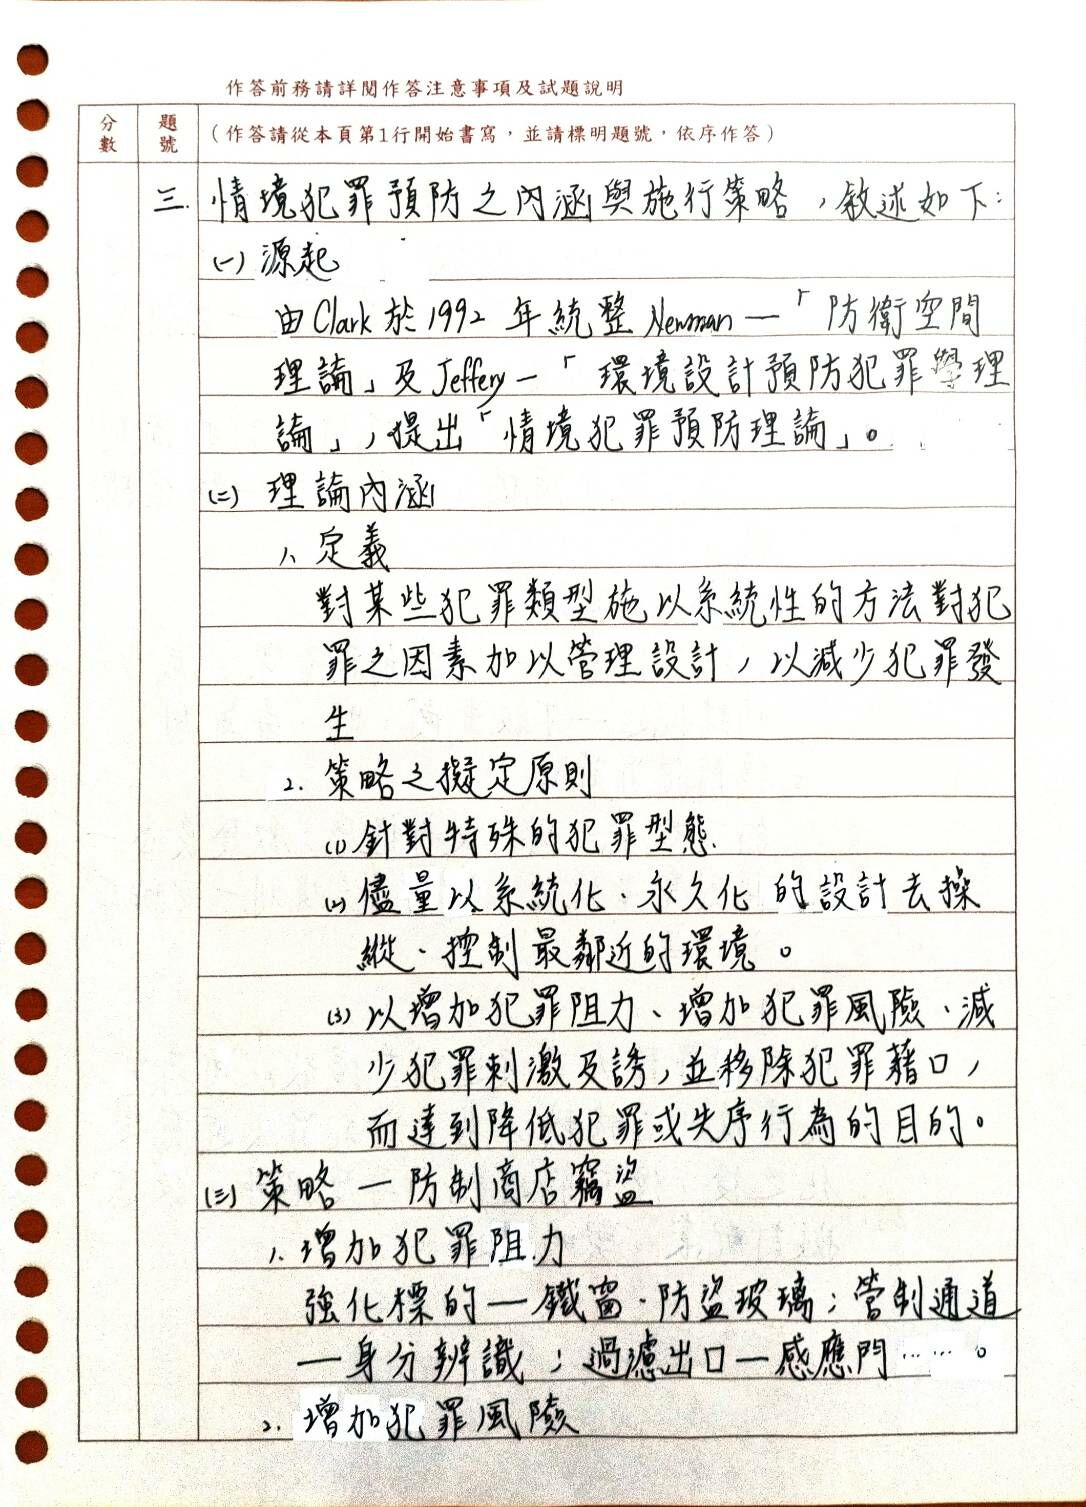 作答前務請詳閱作答注意事項及試題說明
分數 題號 (作答請從本頁第1行開始書寫,並請標明題號,依序作答)
三. 情境犯罪預防之內涵與施行策略,敘述如下:
(一) 源起
由Clark於1992年統整Newman—「防衛空間
理論」及Jeffery—「環境設計預防犯罪學理
論」,提出「情境犯罪預防理論」。
(二) 理論內涵
1. 定義
對某些犯罪類型施以系統性的方法對犯
罪之因素加以管理設計,以減少犯罪發
生
2. 策略之擬定原則
(1) 針對特殊的犯罪型態
(2) 儘量以系統化、永久化的設計去操
縱、控制最鄰近的環境。
(3) 以增加犯罪阻力、增加犯罪風險、減
少犯罪刺激及誘,並移除犯罪藉口,
而達到降低犯罪或失序行為的目的。
(三) 策略—防制商店竊盜
1. 增加犯罪阻力
強化標的—鐵窗、防盜玻璃;管制通道
—身分辨識;過濾出口—感應門……。
2. 增加犯罪風險